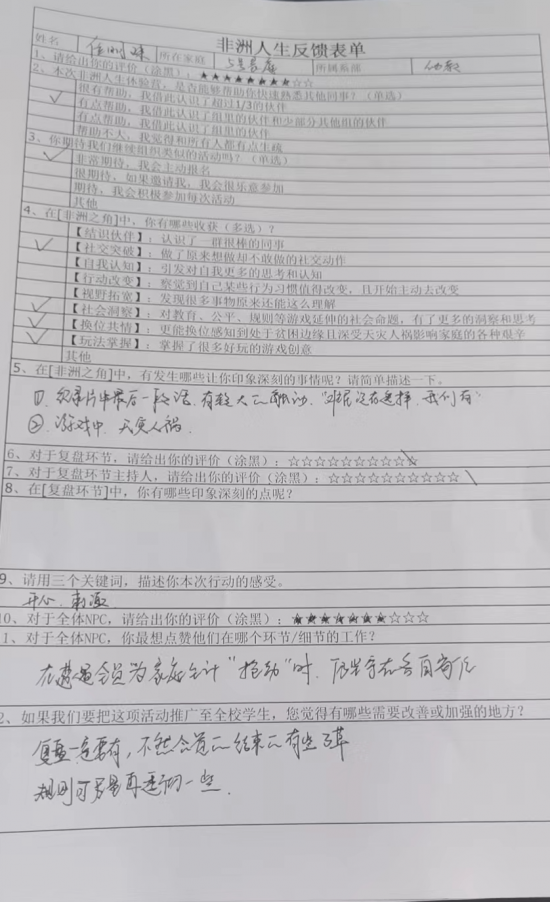 非洲人生反馈表单
姓名 所在家庭 5号家庭 所属系部
1、请给出你的评价（涂黑）：★★★★★★★★☆☆
2、本次非洲人生体验营，是否能够帮助你快速熟悉其他同事？（单选）
✓ 很有帮助，我借此认识了超过1/3的伙伴
有点帮助，我借此认识了组里的伙伴和少部分其他组的伙伴
有点帮助，我借此认识了组里的伙伴
帮助不大，我觉得和所有人都有点生疏
3、你期待我们继续组织类似的活动吗？（单选）
✓ 非常期待，我会主动报名
很期待，如果邀请我，我会很乐意参加
期待，我会积极参加每次活动
其他
4、在[非洲之角]中，你有哪些收获（多选）？
【结识伙伴】：认识了一群很棒的同事
✓ 【社交突破】：做了原来想做却不敢做的社交动作
【自我认知】：引发对自我更多的思考和认知
【行动改变】：察觉到自己某些行为习惯值得改变，且开始主动去改变
【视野拓宽】：发现很多事物原来还能这么理解
✓ 【社会洞察】：对教育、公平、规则等游戏延伸的社会命题，有了更多的洞察和思考
✓ 【换位共情】：更能换位感知到处于贫困边缘且深受天灾人祸影响家庭的各种艰辛
✓ 【玩法掌握】：掌握了很多好玩的游戏创意
其他
5、在[非洲之角]中，有发生哪些让你印象深刻的事情呢？请简单描述一下。
①. 纪录片中最后一段话，有较大的触动，“难民没有选择，我们有”
②. 游戏中，天灾人祸
6、对于复盘环节，请给出你的评价（涂黑）：☆☆☆☆☆☆☆☆☆☆
7、对于复盘环节主持人，请给出你的评价（涂黑）：☆☆☆☆☆☆☆☆☆☆
8、在[复盘环节]中，你有哪些印象深刻的点呢？
9、请用三个关键词，描述你本次行动的感受。
开心、
10、对于全体NPC，请给出你的评价（涂黑）：★★★★★★★☆☆☆
1、对于全体NPC，你最想点赞他们在哪个环节/细节的工作？
在 会员为家庭生计“抢劫”时，
2、如果我们要把这项活动推广至全校学生，您觉得有哪些需要改善或加强的地方？
复盘一定要有，不然会觉得结束的有些
规则可 再 一些.